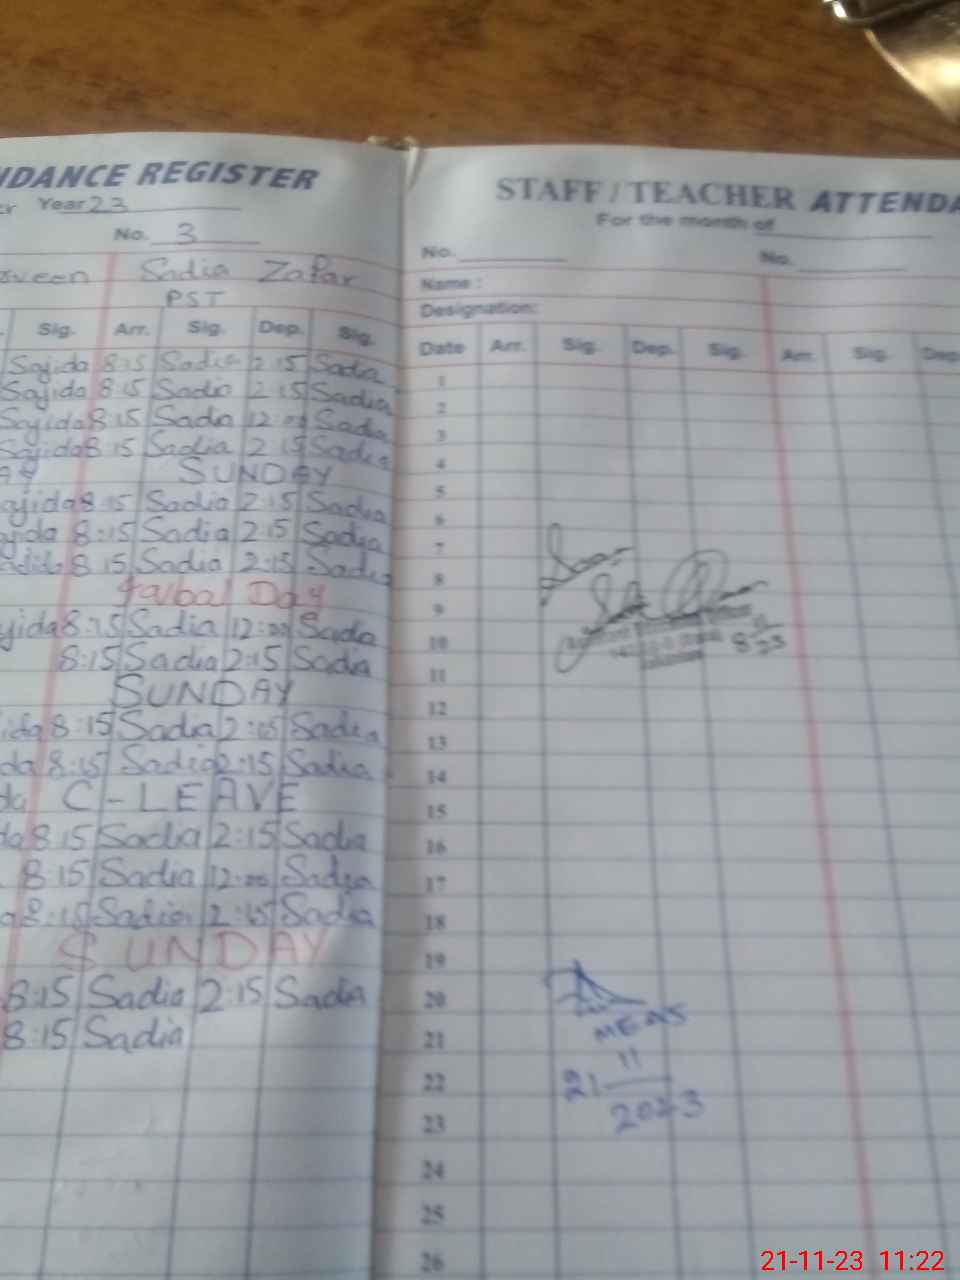 NDANCE REGISTER
er Year 23
No. 3
veen Sadia Zafar
PST
Sig. Arr. Sig. Dep. Sig.
Sajida 8:15 Sadia 2:15 Sadia
Sajida 8:15 Sadia 2:15 Sadia
Sajida 8:15 Sadia 12:00 Sadia
Sajida 8:15 Sadia 2:15 Sadia
SUNDAY
ajida 8:15 Sadia 2:15 Sadia
jida 8:15 Sadia 2:15 Sadia
8:15 Sadia 2:15 Sadia
Iqbal Day
jida 8:15 Sadia 12:00 Sadia
8:15 Sadia 2:15 Sadia
SUNDAY
ida 8:15 Sadia 2:15 Sadia
da 8:15 Sadia 2:15 Sadia
da C-LEAVE
da 8:15 Sadia 2:15 Sadia
8:15 Sadia 12:00 Sadia
a 8:15 Sadia 2:15 Sadia
SUNDAY
8:15 Sadia 2:15 Sadia
8:15 Sadia
STAFF / TEACHER ATTENDA
For the month of
No. No.
Name :
Designation:
Date Arr. Sig. Dep. Sig. Arr. Sig. Dep
1
2
3
4
5
6
7
8
9
10
11
12
13
14
15
16
17
18
19
20
21
22
23
24
25
26
MEAS
21 11
2023
21-11-23 11:22